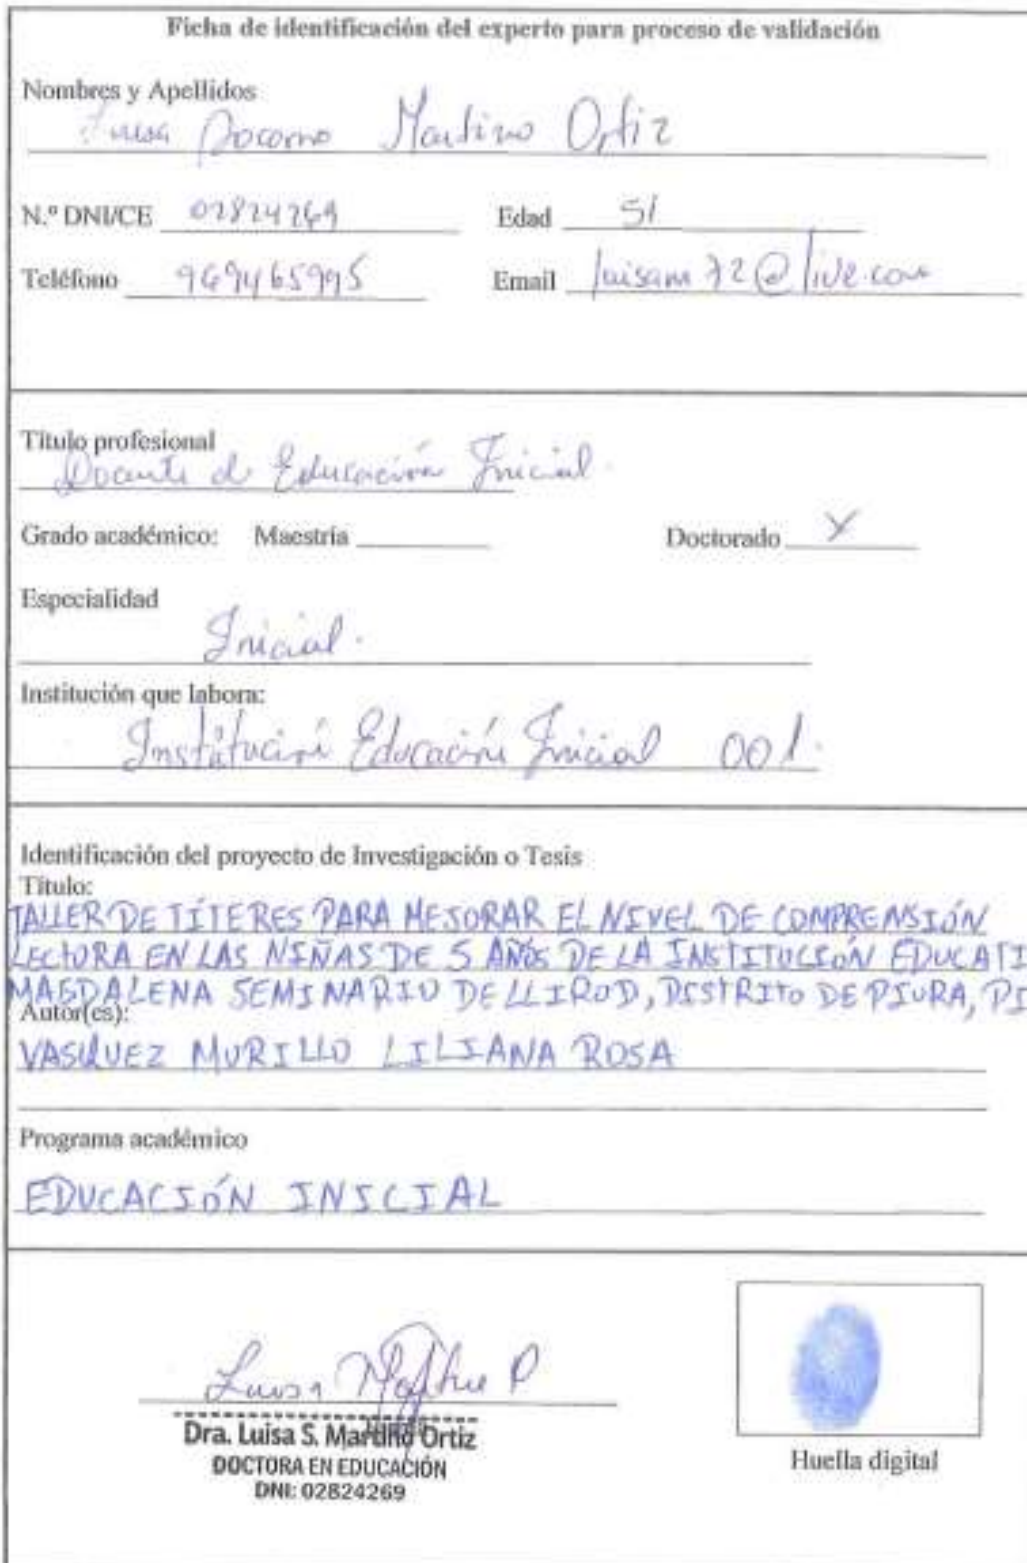 Ficha de identificación del experto para proceso de validación
Nombres y Apellidos
Luisa Socorro Martino Ortiz
N.º DNI/CE 02824269 Edad 51
Teléfono 969465995 Email luisam72@live.com
Título profesional
Docente de Educación Inicial.
Grado académico: Maestría Doctorado X
Especialidad
Inicial.
Institución que labora:
Institución Educación Inicial 001.
Identificación del proyecto de Investigación o Tesis
Título:
TALLER DE TÍTERES PARA MEJORAR EL NIVEL DE COMPRENSIÓN
LECTORA EN LAS NIÑAS DE 5 AÑOS DE LA INSTITUCIÓN EDUCATI
MAGDALENA SEMINARIO DE LLIROD, DISTRITO DE PIURA, PI
Autor(es):
VASQUEZ MURILLO LILIANA ROSA
Programa académico
EDUCACIÓN INICIAL
Luisa
Dra. Luisa S. Martino Ortiz
DOCTORA EN EDUCACIÓN
DNI: 02824269
Huella digital